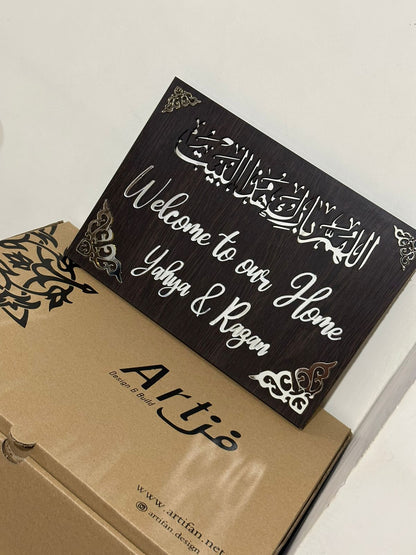 اللهم بارك هذا البيت
Welcome to our Home
Yahya & Razan
Artفن
Design & Build
www.artifan.net
artifan_design